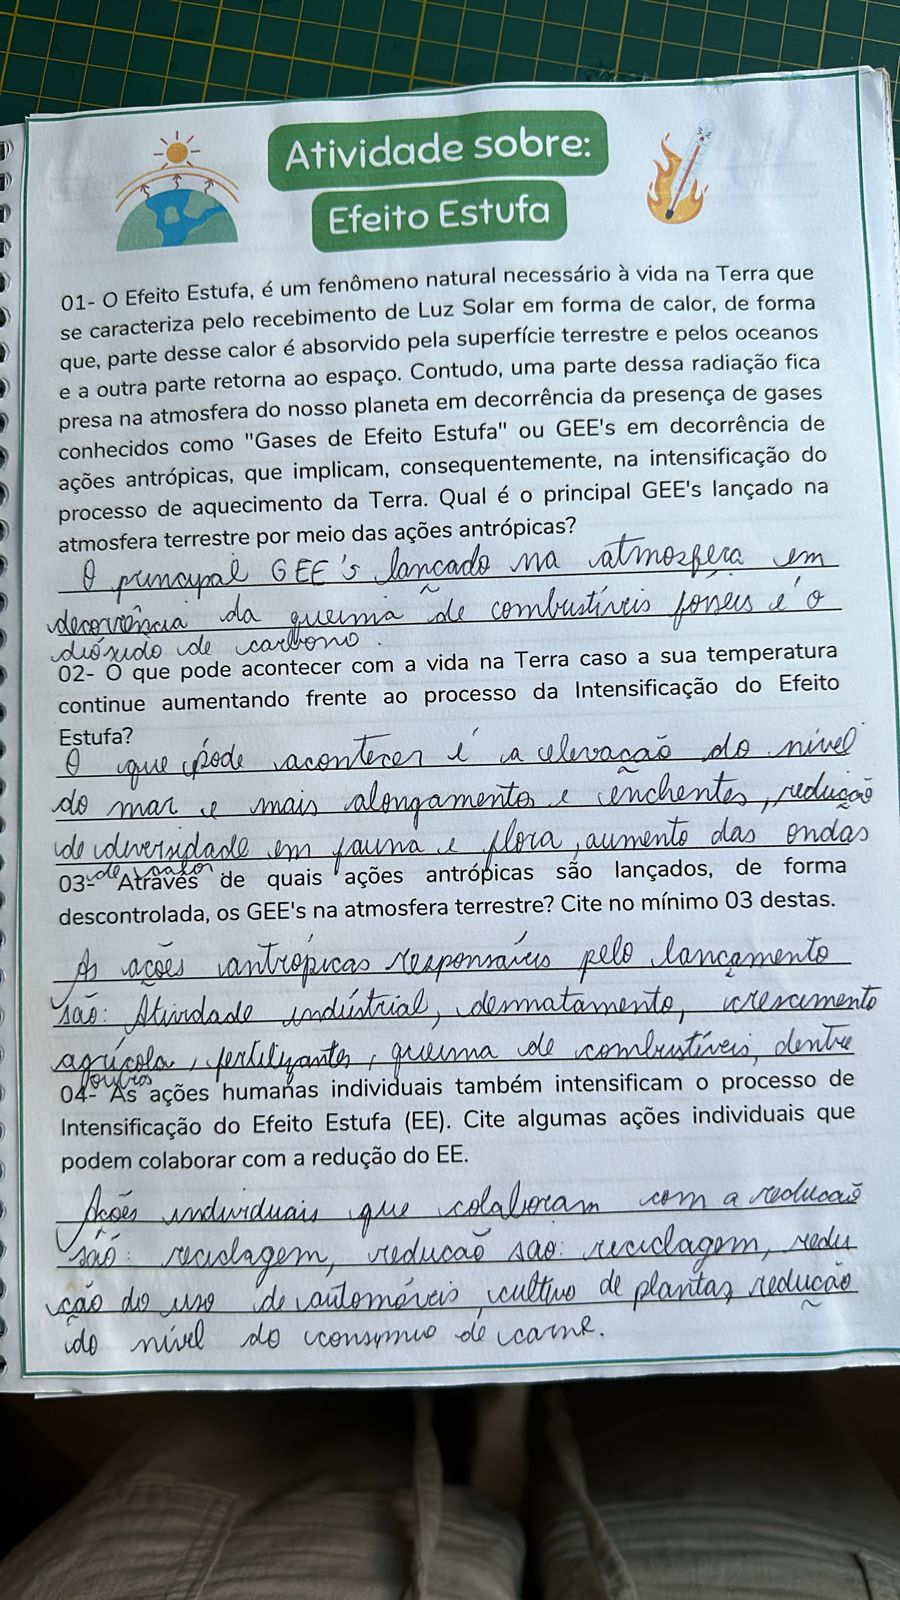 Atividade sobre:
Efeito Estufa
01- O Efeito Estufa, é um fenômeno natural necessário à vida na Terra que
se caracteriza pelo recebimento de Luz Solar em forma de calor, de forma
que, parte desse calor é absorvido pela superfície terrestre e pelos oceanos
e a outra parte retorna ao espaço. Contudo, uma parte dessa radiação fica
presa na atmosfera do nosso planeta em decorrência da presença de gases
conhecidos como "Gases de Efeito Estufa" ou GEE's em decorrência de
ações antrópicas, que implicam, consequentemente, na intensificação do
processo de aquecimento da Terra. Qual é o principal GEE's lançado na
atmosfera terrestre por meio das ações antrópicas?
O principal GEE's lançado na atmosfera em
decorrência da queima de combustíveis fósseis é o
dióxido de carbono.
02- O que pode acontecer com a vida na Terra caso a sua temperatura
continue aumentando frente ao processo da Intensificação do Efeito
Estufa?
O que pode acontecer é a elevação do nível
do mar e mais alongamentos e enchentes, redução
de diversidade em fauna e flora, aumento das ondas
de calor
03- Através de quais ações antrópicas são lançados, de forma
descontrolada, os GEE's na atmosfera terrestre? Cite no mínimo 03 destas.
As ações antrópicas responsáveis pelo lançamento
são: Atividade indústrial, desmatamento, crescimento
agrícola, fertilizantes, queima de combustíveis, dentre
outros
04- As ações humanas individuais também intensificam o processo de
Intensificação do Efeito Estufa (EE). Cite algumas ações individuais que
podem colaborar com a redução do EE.
Ações individuais que colaboram com a reducaõ
são: reciclagem, reducaõ sao: reciclagem, redu
ção do uso de automóveis, cultivo de plantas, redução
do nível do consumo de carne.